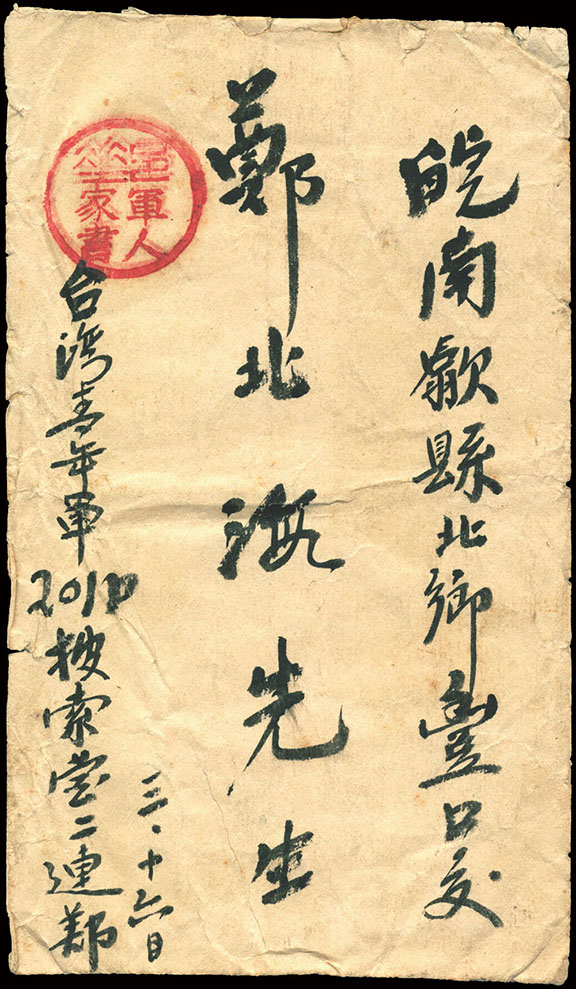 皖南歙縣北鄉豐口交
鄭北海先生
軍人
家書
台灣青年軍
201D搜索营二連鄭
三·十六日